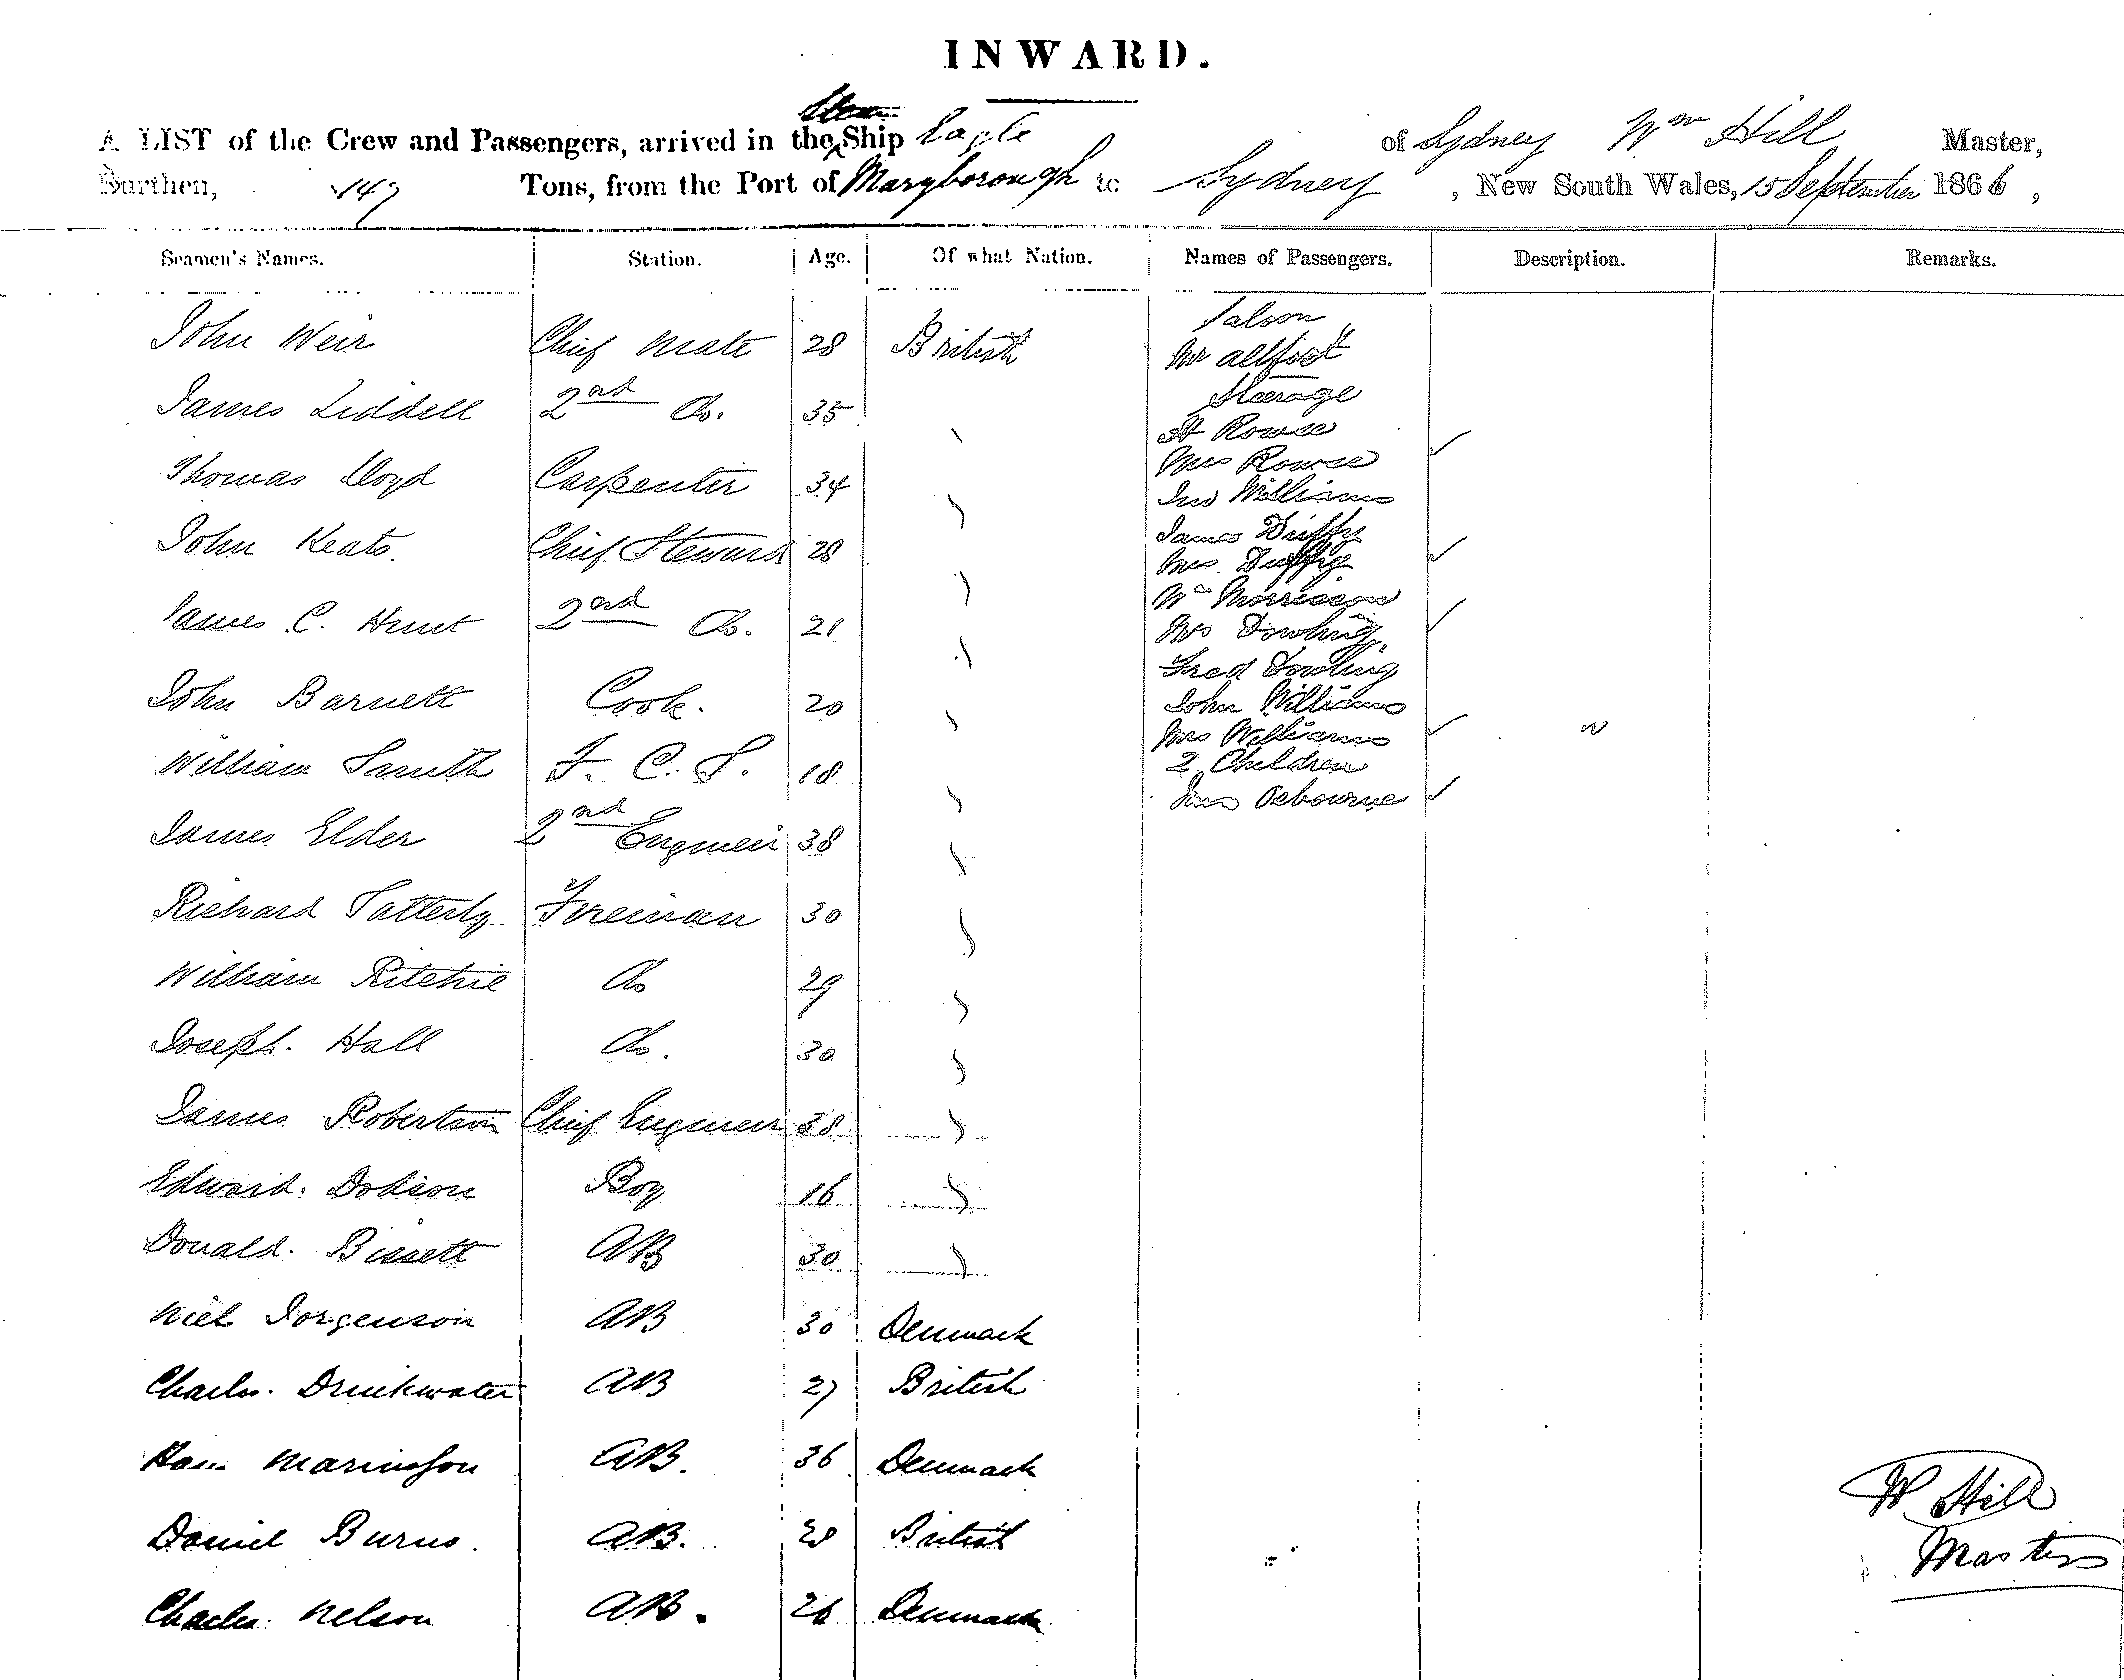 INWARD.
Steam
A LIST of the Crew and Passengers, arrived in the Ship Eagle of Sydney Wm Hill Master,
Burthen, 147 Tons, from the Port of Maryborough to Sydney, New South Wales, 15 September 1866,
Seamen's Names. Station. Age. Of what Nation. Names of Passengers. Description. Remarks.
Saloon
John Weir Chief Mate 28 British Mr Allport
Steerage
James Liddell 2nd Do. 35
St Rowse
Mrs Rowse
Thomas Lloyd Carpenter 34
Jno Williams
James Duffy
John Keats. Chief Steward 28
Mrs. Duffy
Wm Morrisson
James C. Hunt 2nd Do. 21 Mrs Dowling
Fred Dowling
John Barnett Cook. 20 John Williams
Mrs Williams
William Smith F. C. S. 18 2 Children
Osbourne
James Elder 2nd Engineer 38
Richard Satterly Fireman 30
William Ritchie Do 29
Joseph. Hall Do. 30
James Robertson Chief Engineer 38
Edward. Dobson Boy 16
Donald. Bissett AB 30
Niel Jorgenson AB 30 Denmark
Charles. Drinkwater AB 27 British
Hans Marinson AB. 36 Denmark
W Hill
Daniel Burns. AB. 28 British
Master
Charles. Nelson AB. 26 Denmark